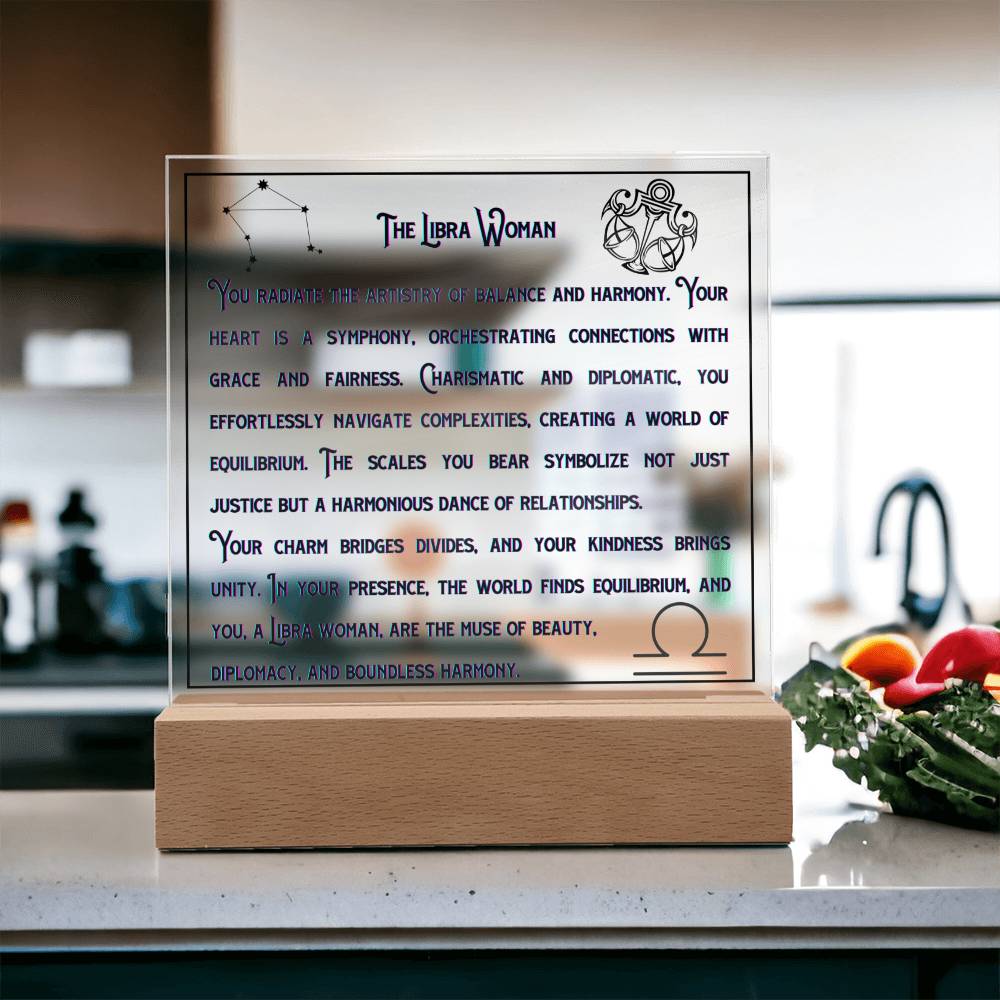 The Libra Woman
You radiate the artistry of balance and harmony. Your
heart is a symphony, orchestrating connections with
grace and fairness. Charismatic and diplomatic, you
effortlessly navigate complexities, creating a world of
equilibrium. The scales you bear symbolize not just
justice but a harmonious dance of relationships.
Your charm bridges divides, and your kindness brings
unity. In your presence, the world finds equilibrium, and
you, a Libra woman, are the muse of beauty,
diplomacy, and boundless harmony.